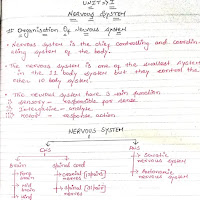 UNIT → I
NERVOUS SYSTEM
Organisation of Nervous System
• Nervous system is the chief controlling and coordin-
ating system of the body.
• The nervous system is one of the smallest system
in the 11 body system but they control the
other 10 body system.
• The neural system have 3 main function
i) Sensory - responsible for sense
ii) Integrative - analyse
iii) Motor - response action
NERVOUS SYSTEM
CNS
PNS
Brain
Spinal cord
→ Somatic
nervous system
→ Fore
brain
→ Cranial
nerves
→ Autonomic
nervous
system
→ Mid
brain
→ Spinal (31 pair)
nerves
→ Hind